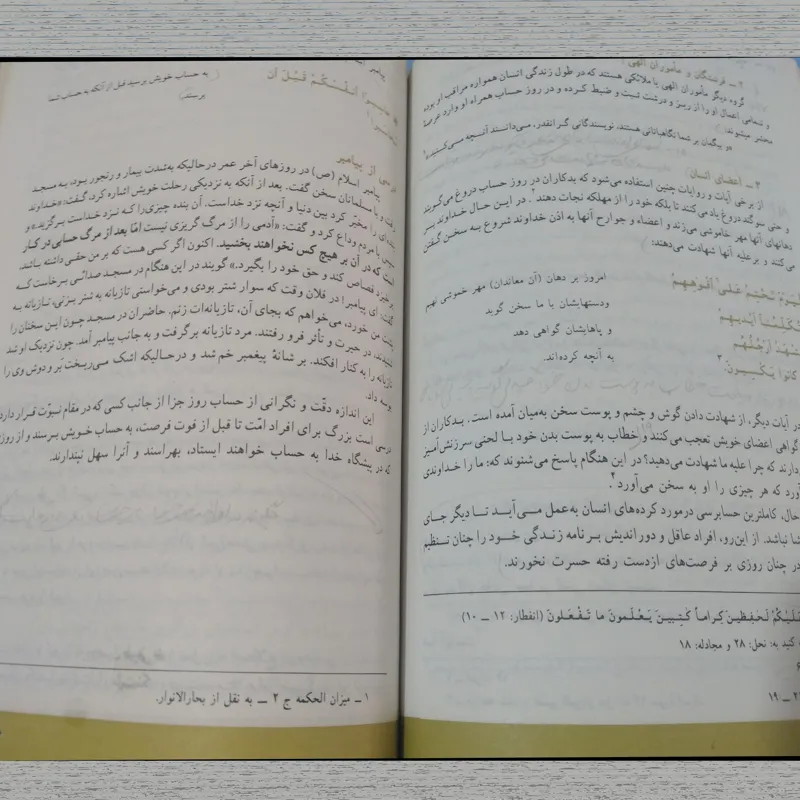 ۲ ــ فرشتگان و مأموران الهی
گروه دیگر مأموران الهی یا ملائکی هستند که در طول زندگی انسان همواره مراقب او بوده
و تمامی اعمال او را از ریز و درشت ثبت و ضبط کرده و در روز حساب همراه او وارد عرصهٔ
محشر میشوند:
در پیگمان بر شما نگاهبانانی هستند، نویسندگانی گرانقدر، می‌دانند آنچه می‌کنید.
۳ ــ اعضای انسان
از برخی آیات و روایات چنین استفاده می‌شود که بدکاران در روز حساب دروغ می‌گویند
و حتی سوگند دروغ یاد می‌کنند تا بلکه خود را از مهلکه نجات دهند. در این حال خداوند بر
دهانهای آنها مهر خاموشی می‌زند و اعضاء و جوارح آنها به اذن خداوند شروع به سخن گفتن
می‌کنند و برعلیه آنها شهادت می‌دهند:
نَخْتِمُ عَلىٰ أَفْوٰهِهِمْ
امروز بر دهان (آن معاندان) مهر خموشی نهیم
تُكَلِّمُنٰا أَيْديهِمْ
ودستهایشان با ما سخن گوید
أَرْجُلُهُمْ
و پاهایشان گواهی دهد
كانُوا يَكْسِبُونَ. ۳
به آنچه کرده‌اند.
در آیات دیگر، از شهادت دادن گوش و چشم و پوست سخن به‌میان آمده است. بدکاران از
گواهی اعضای خویش تعجب می‌کنند و خطاب به پوست بدن خود با لحنی سرزنش‌آمیز
دارند که چرا علیه ما شهادت می‌دهید؟ در این هنگام پاسخ می‌شنوند که: ما را خداوندی
آورد که هر چیزی را او به سخن می‌آورد.
حال، کاملترین حسابرسی درمورد کرده‌های انسان به‌عمل می‌آید تا دیگر جای
نباشد. از این‌رو، افراد عاقل و دوراندیش برنامه زندگی خود را چنان تنظیم
در چنان روزی بر فرصت‌های ازدست رفته حسرت نخورند.
عَلَيْكُمْ لَحٰفِظينَ كِراماً كٰتِبينَ يَعْلَمُونَ ما تَفْعَلُونَ (انفطار: ۱۲ ــ ۱۰)
کنید به: نحل: ۲۸ و مجادله: ۱۸
ــ ۱۹
أَنْفُسَكُمْ قَبْلَ أَن
به حساب خویش برسید قبل از آنکه به حساب شما
برسند.
درسی از پیامبر
پیامبر اسلام (ص) در روزهای آخر عمر درحالیکه به‌شدت بیمار و رنجور بود، به مسجد
رفت و با مسلمانان سخن گفت. بعد از آنکه به نزدیکی رحلت خویش اشاره کرد، گفت: «خداوند
بنده‌ای را مخیّر کرد بین دنیا و آنچه نزد خداست. آن بنده چیزی را که نزد خداست برگزید.» و
سپس با مردم وداع کرد و گفت: «آدمی را از مرگ گریزی نیست امّا بعد از مرگ حسابی در کار
است که در آن بر هیچ کس نخواهند بخشید. اکنون اگر کسی هست که بر من حقی داشته باشد،
برخیزد قصاص کند و حق خود را بگیرد.» گویند در این هنگام در مسجد صدائی برخاست که
گفت: ای پیامبر! در فلان وقت که سوار شتر بودی و می‌خواستی تازیانه به شتر بزنی، تازیانه به
پشت من خورد، می‌خواهم که بجای آن، تازیانه‌ات زنم. حاضران در مسجد چون این سخنان را
شنیدند، در حیرت و تأثر فرو رفتند. مرد تازیانه برگرفت و به جانب پیامبر آمد. چون نزدیک او شد
تازیانه را به کنار افکند. بر شانهٔ پیغمبر خم شد و درحالیکه اشک می‌ریخت بَر و دوش وی را
بوسه داد.
این اندازه دقّت و نگرانی از حساب روز جزا از جانب کسی که در مقام نبوّت قرار دارد
درسی است بزرگ برای افراد امّت تا قبل از فوت فرصت، به حساب خویش برسند و از روزی
که در پیشگاه خدا به حساب خواهند ایستاد، بهراسند و آنرا سهل نپندارند.
۱ ــ میزان الحکمه ج ۲ ــ به نقل از بحارالانوار.